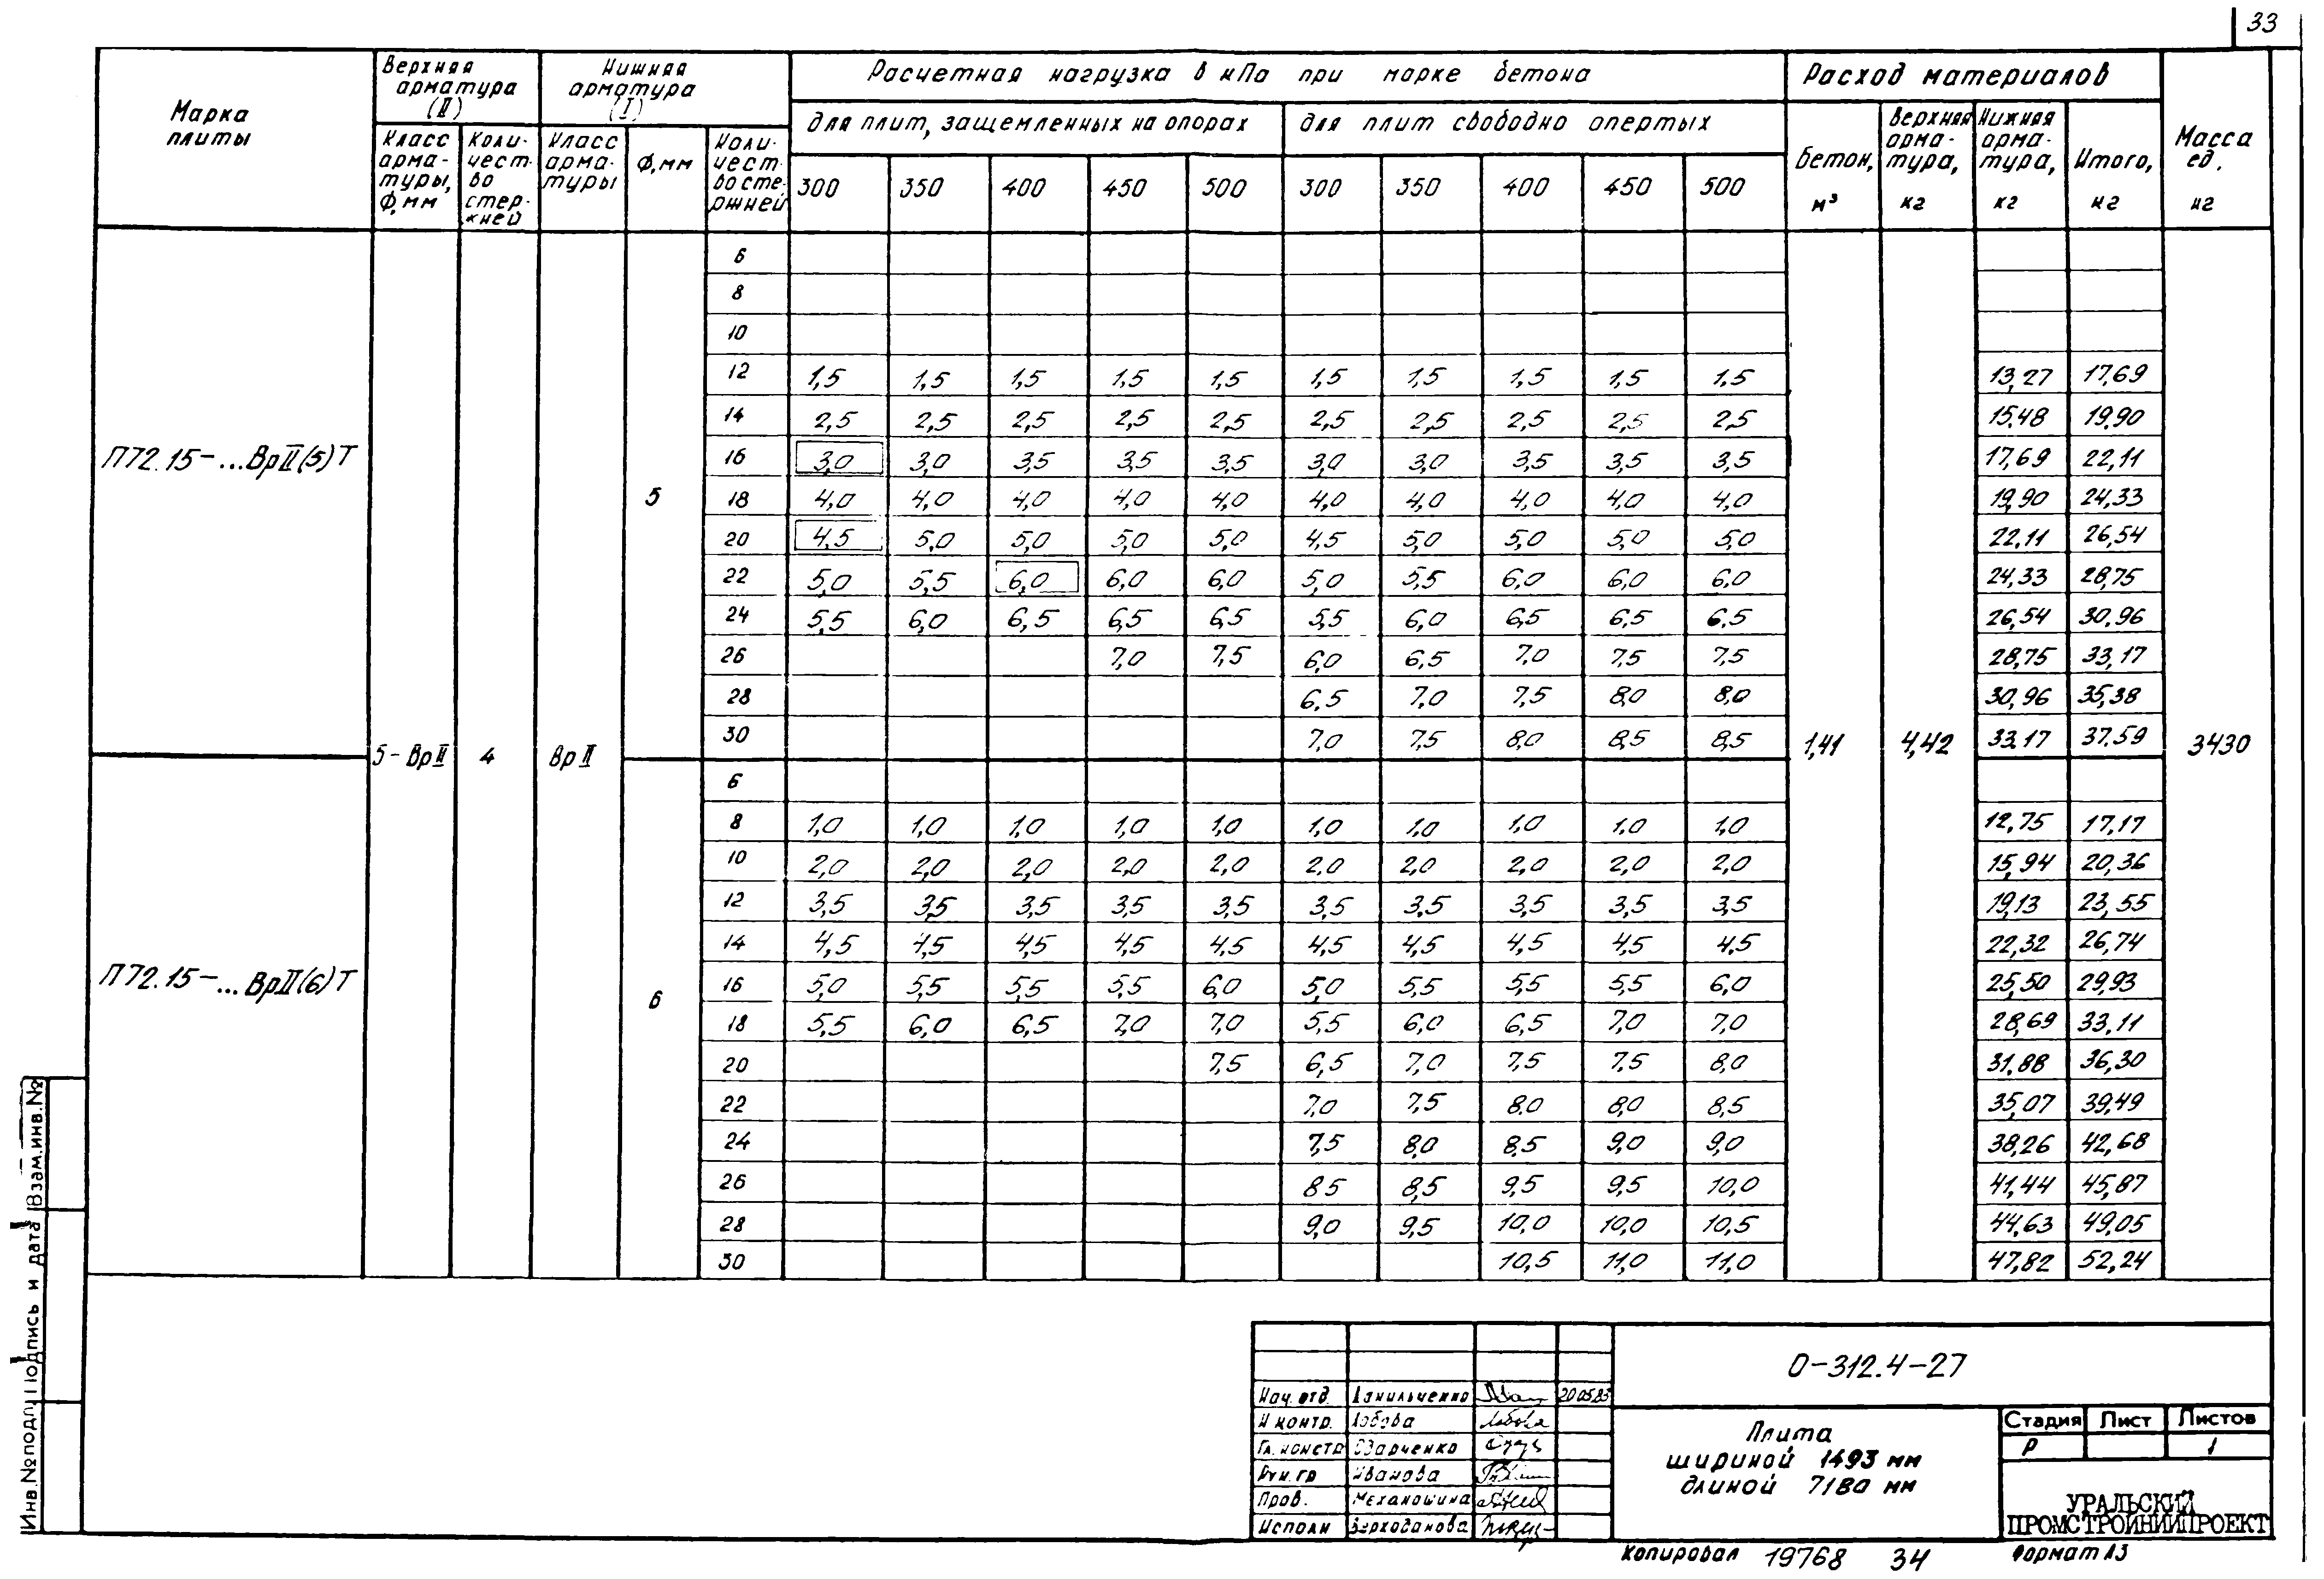 33
Марка плиты
Верхняя арматура (II)
Нижняя арматура (I)
Расчетная нагрузка в кПа при марке бетона
Расход материалов
Масса ед. кг
для плит, защемленных на опорах
для плит свободно опертых
Класс арматуры, Ф,мм
Количество стержней
Класс арматуры
Ф,мм
Количество стержней
300 350 400 450 500 300 350 400 450 500
Бетон, м³
Верхняя арматура, кг
Нижняя арматура, кг
Итого, кг
П72.15-...ВрII(5)Т
5
6
8
10
12 1,5 1,5 1,5 1,5 1,5 1,5 1,5 1,5 1,5 1,5 13,27 17,69
14 2,5 2,5 2,5 2,5 2,5 2,5 2,5 2,5 2,5 2,5 15,48 19,90
16 3,0 3,0 3,5 3,5 3,5 3,0 3,0 3,5 3,5 3,5 17,69 22,11
18 4,0 4,0 4,0 4,0 4,0 4,0 4,0 4,0 4,0 4,0 19,90 24,33
20 4,5 5,0 5,0 5,0 5,0 4,5 5,0 5,0 5,0 5,0 22,11 26,54
22 5,0 5,5 6,0 6,0 6,0 5,0 5,5 6,0 6,0 6,0 24,33 28,75
24 5,5 6,0 6,5 6,5 6,5 5,5 6,0 6,5 6,5 6,5 26,54 30,96
26 7,0 7,5 6,0 6,5 7,0 7,5 7,5 28,75 33,17
28 6,5 7,0 7,5 8,0 8,0 30,96 35,38
30 7,0 7,5 8,0 8,5 8,5 33,17 37,59
5-ВрII 4 ВрII 1,41 4,42 3430
П72.15-...ВрII(6)Т
6
6
8 1,0 1,0 1,0 1,0 1,0 1,0 1,0 1,0 1,0 1,0 12,75 17,17
10 2,0 2,0 2,0 2,0 2,0 2,0 2,0 2,0 2,0 2,0 15,94 20,36
12 3,5 3,5 3,5 3,5 3,5 3,5 3,5 3,5 3,5 3,5 19,13 23,55
14 4,5 4,5 4,5 4,5 4,5 4,5 4,5 4,5 4,5 4,5 22,32 26,74
16 5,0 5,5 5,5 5,5 6,0 5,0 5,5 5,5 5,5 6,0 25,50 29,93
18 5,5 6,0 6,5 7,0 7,0 5,5 6,0 6,5 7,0 7,0 28,69 33,11
20 7,5 6,5 7,0 7,5 7,5 8,0 31,88 36,30
22 7,0 7,5 8,0 8,0 8,5 35,07 39,49
24 7,5 8,0 8,5 9,0 9,0 38,26 42,68
26 8,5 8,5 9,5 9,5 10,0 41,44 45,87
28 9,0 9,5 10,0 10,0 10,5 44,63 49,05
30 10,5 11,0 11,0 47,82 52,24
Инв.№ подл. Подпись и дата Взам.инв.№
О-312.4-27
Нач. отд. Данильченко 20.05.83
Н контр. Лобова
Гл. констр
Рук. гр Иванова
Пров. Механошина
Исполн
Плита
шириной 1493 мм
длиной 7180 мм
Стадия Лист Листов
Р 1
УРАЛЬСКИЙ
ПРОМСТРОЙНИИПРОЕКТ
Копировал 19768 34 Формат А3